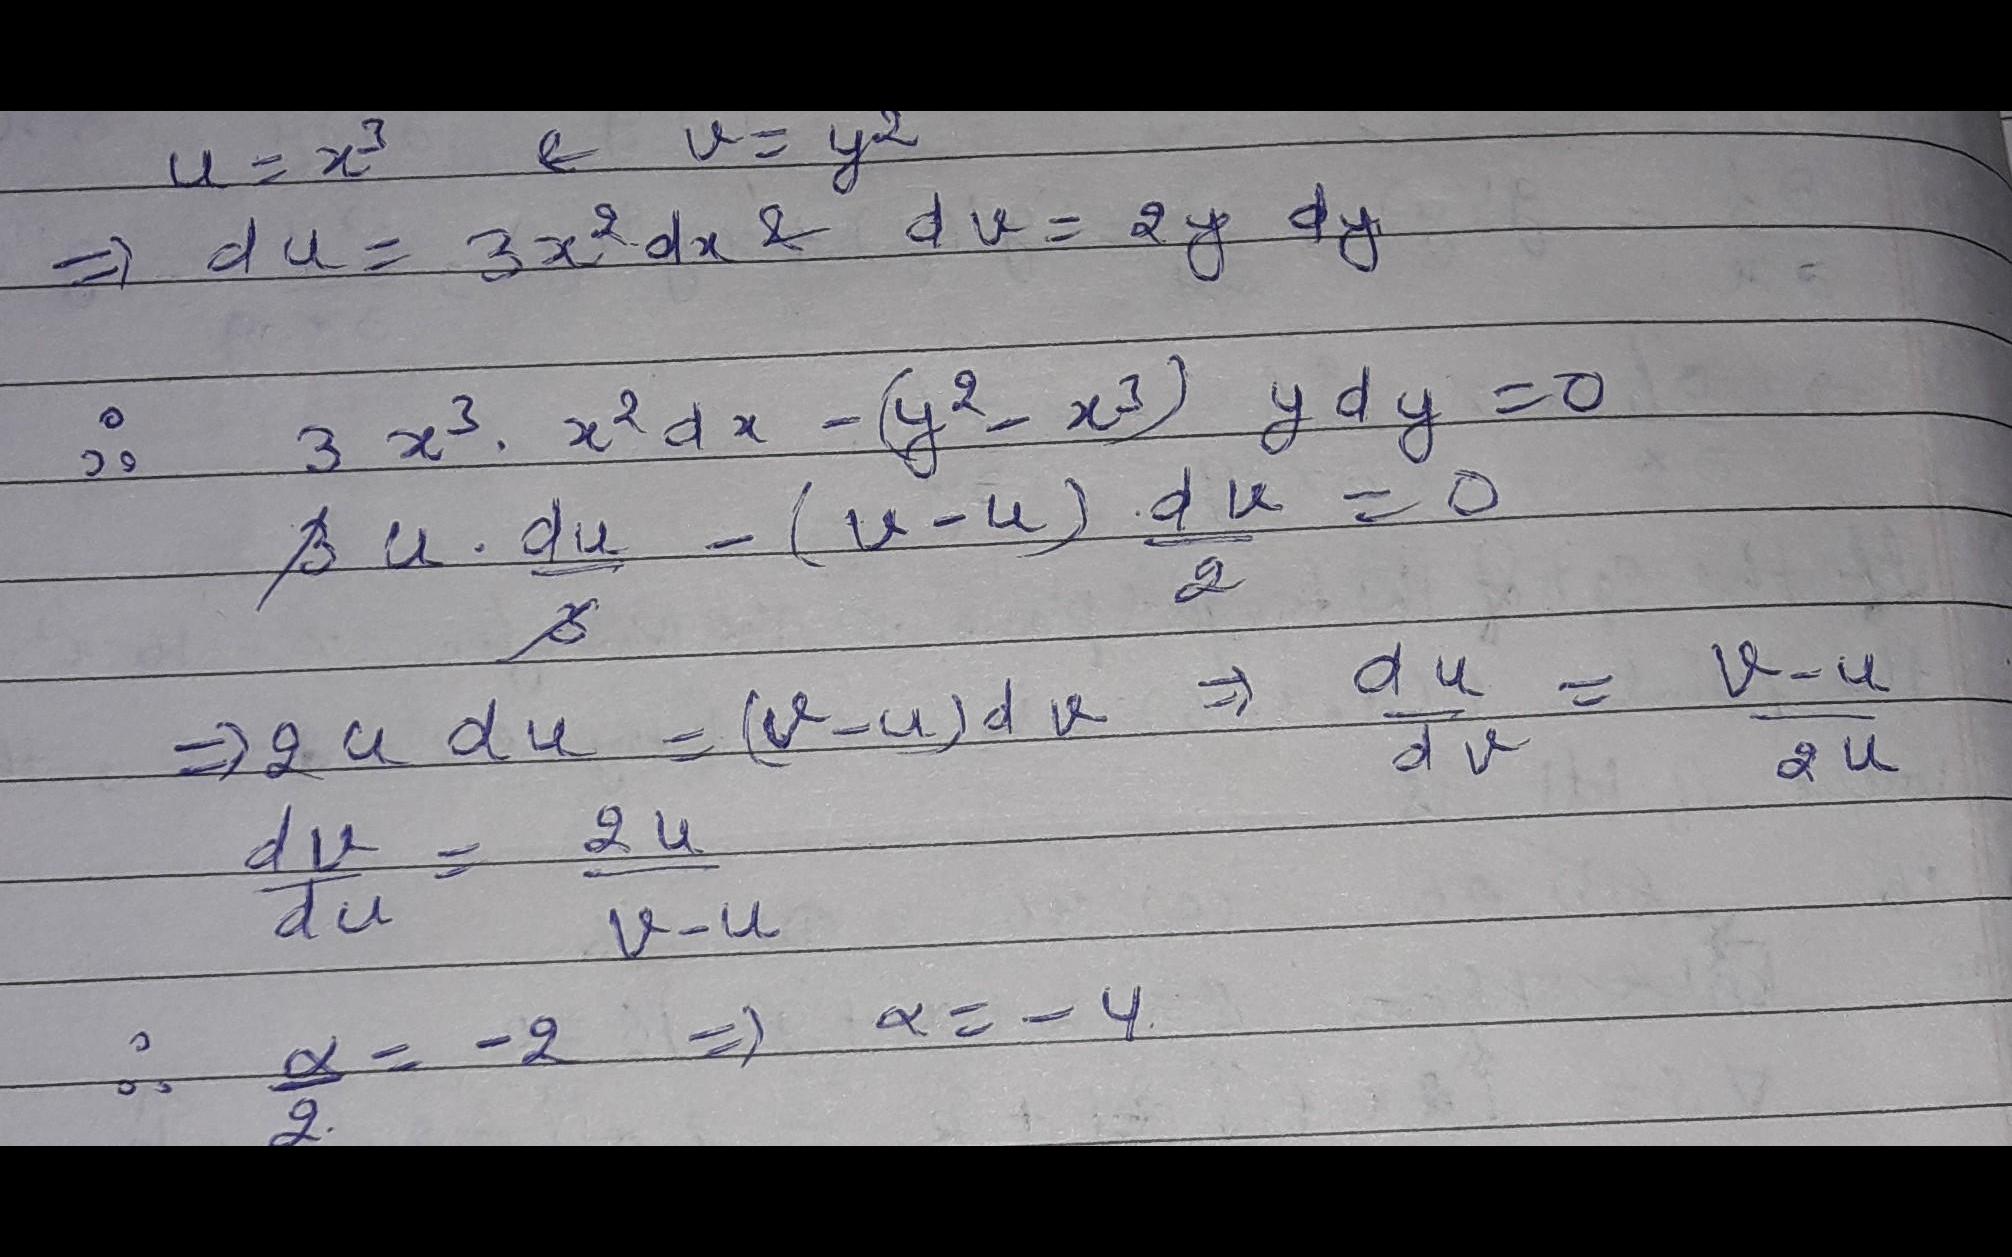 u = x³ & v = y²
⇒ du = 3x² dx & dv = 2y dy
∴ 3 x³. x² dx - (y² - x³) y dy = 0
3 u . du/3 - (v - u) . dv/2 = 0
⇒ 2 u du = (v - u) dv ⇒ du/dv = v - u/2u
dv/du = 2u/v - u
∴ α/2. = -2 ⇒ α = - 4.